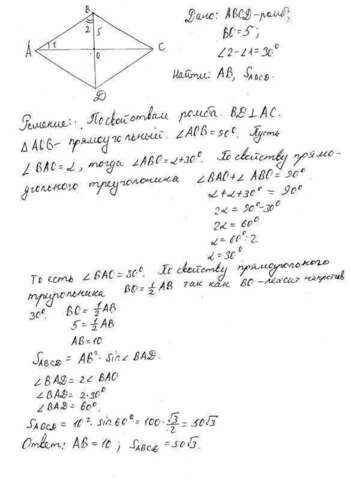 B
2 5
A 1 0 C
D
Дано: ABCD-ромб;
BO=5;
∠2-∠1=30°
Найти: AB, SABCD.
Решение: По свойствам ромба. BD⊥AC.
△AOB- прямоугольный. ∠AOB=90°. Пусть
∠BAO=α, тогда ∠ABO=α+30°. По свойству прямо-
угольного треугольника ∠BAO+∠ABO=90°
α+α+30°=90°
2α=90°-30°
2α=60°
α=60°:2
α=30°
То есть ∠BAO=30°. По свойству прямоугольного
треугольника BO=1/2AB так как BO-лежит напротив
30°. BO=1/2AB
5=1/2AB
AB=10
SABCD=AB²·sin∠BAD.
∠BAD=2∠BAO
∠BAD=2·30°
∠BAD=60°
SABCD=10²·sin60°=100·√3/2=50√3
Ответ: AB=10; SABCD=50√3.